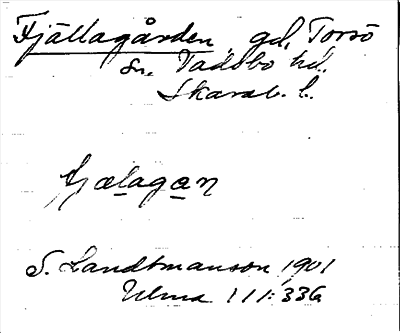 Fjällagården, gd, Torsö
sn. Vadsbo hd.
Skarab. l.
fjælagan
S. Landtmanson 1901
Ulma 111:336